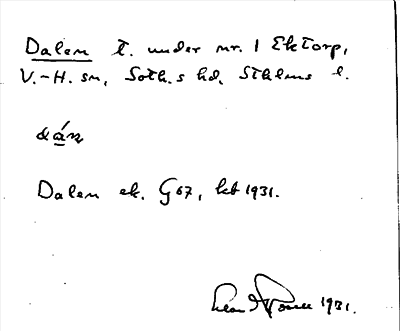 Dalen t. under nr. 1 Ektorp,
V.-H. sn, Soth.s hd, Sthlms l.
dán
Dalen ek. G 67, kbt 1931.
1931.